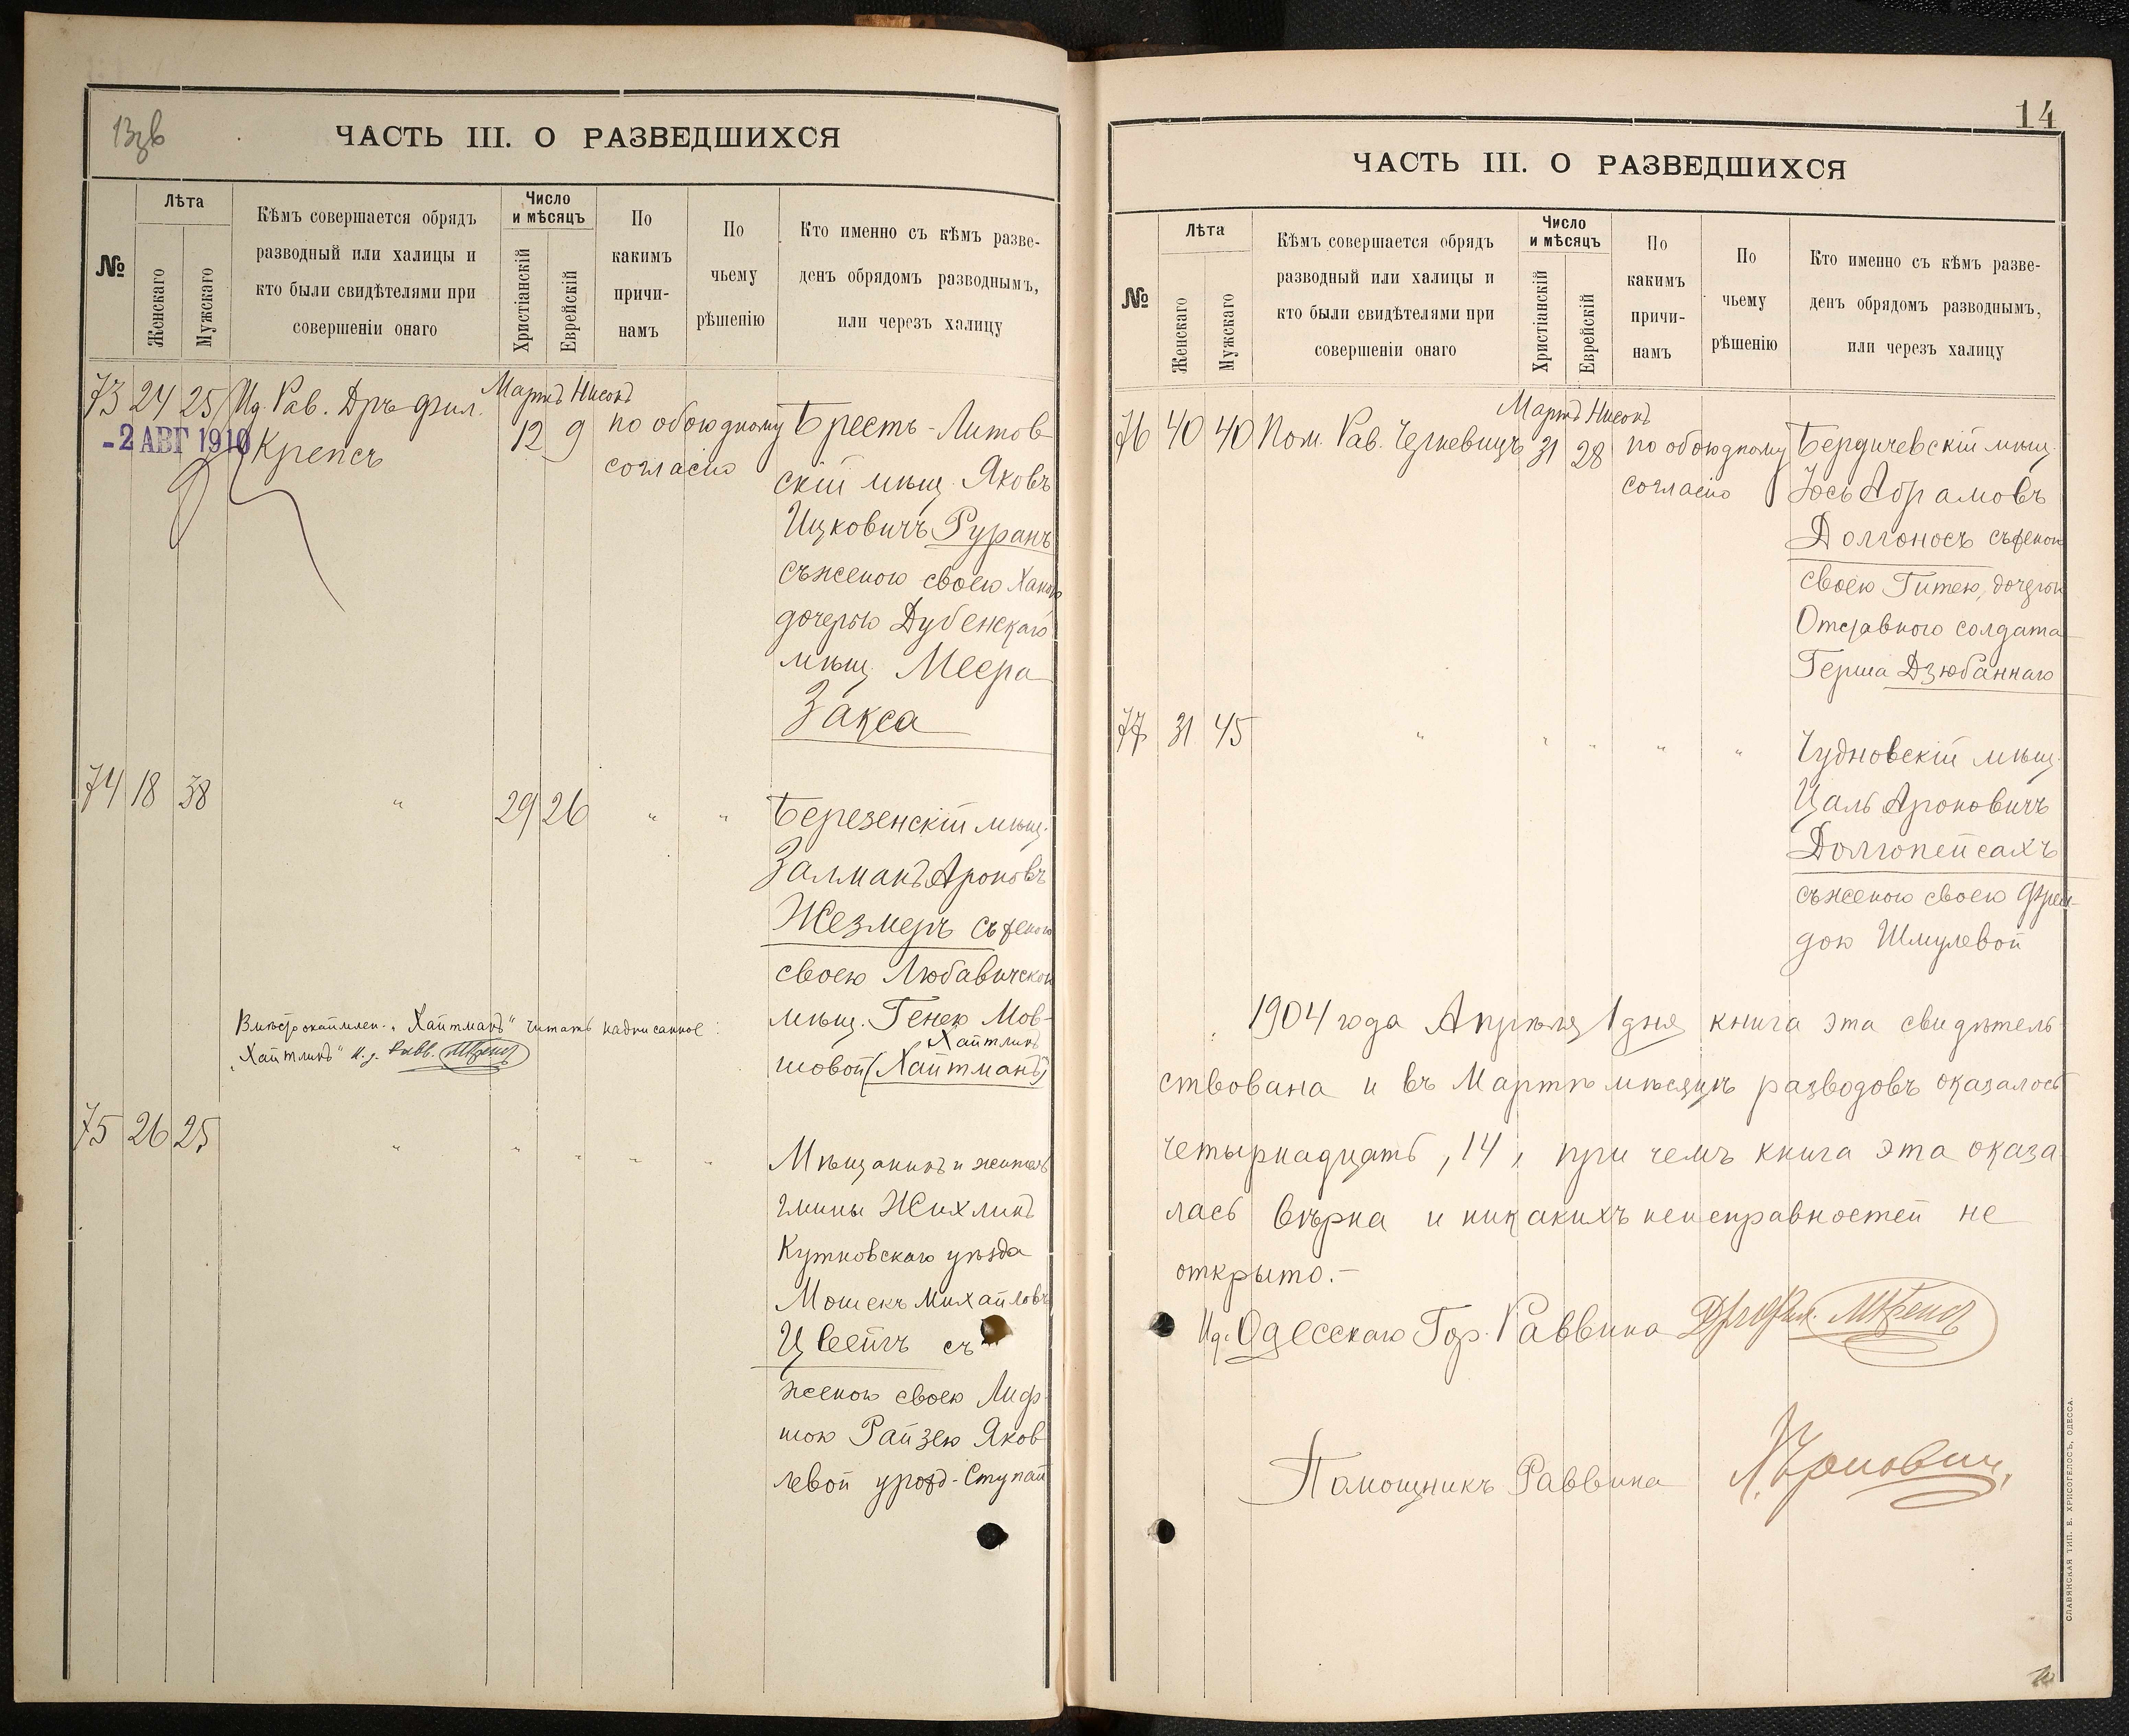 13зв
ЧАСТЬ III. О РАЗВЕДШИХСЯ
№
Лѣта
Женскаго
Мужскаго
Кѣмъ совершается обрядъ
разводный или халицы и
кто были свидѣтелями при
совершеніи онаго
Число
и мѣсяцъ
Христіанскій
Еврейскій
По
какимъ
причи-
намъ
По
чьему
рѣшенію
Кто именно съ кѣмъ разве-
денъ обрядомъ разводнымъ,
или черезъ халицу
Мартъ Нисонъ
73 24 25 Ид. Рав. Дръ фил.
Крепсъ
12 9
по обоюдному
согласію
-2 АВГ 1910
Брестъ-Литов
скій мѣщ. Яковъ
Ицковичъ Руранъ
съ женою своею Ханою
дочерью Дубенскаго
мѣщ. Меера
Закса
74 18 38 " 29 26 " "
Березенскій мѣщ.
Залманъ Ароновъ
Жезмеръ съ женою
своею Любавичской
мѣщ. Генею Мов-
Хайтлинъ
шовой (Хайтманъ)
Вмѣсто „Хайтманъ" читать надписанное:
„Хайтлинъ" И. д. Равв. МКрепсъ
75 26 25 " " " " "
Мѣщанинъ и житель
гмины Жихлинъ
Кутновскаго уѣзда
Мошекъ Михайловъ
Цвейгъ съ
женою своею Лиф-
шою Райзею Яков-
левой урожд. Ступай
14
ЧАСТЬ III. О РАЗВЕДШИХСЯ
№
Лѣта
Женскаго
Мужскаго
Кѣмъ совершается обрядъ
разводный или халицы и
кто были свидѣтелями при
совершеніи онаго
Число
и мѣсяцъ
Христіанскій
Еврейскій
По
какимъ
причи-
намъ
По
чьему
рѣшенію
Кто именно съ кѣмъ разве-
денъ обрядомъ разводнымъ,
или черезъ халицу
Мартъ Нисонъ
76 40 40 Пом. Рав. 31 28
по обоюдному
согласію
Бердичевскій мѣщ.
Іось Абрамовъ
Долгоносъ съ женою
своею Гитею, дочерью
Отставного солдата
Герша Дзюбаннаго
77 31 45 " " " " "
Чудновскій мѣщ.
Цаль Ароновичъ
Долгопейсахъ
съ женою своею Фрей-
дою Шмулевой
1904 года Апрѣля 1 дня книга эта свидѣтель-
ствована и въ Мартѣ мѣсяцѣ разводовъ оказалось
четырнадцать, 14, при чемъ книга эта оказа
лась вѣрна и никакихъ неисправностей не
открыто.-
Ид. Одесскаго Гор. Раввина Дръ Фил. МКрепсъ
Помощникъ Раввина
СЛАВЯНСКАЯ ТИП. Е. ХРИСОГЕЛОСЪ, ОДЕССА.